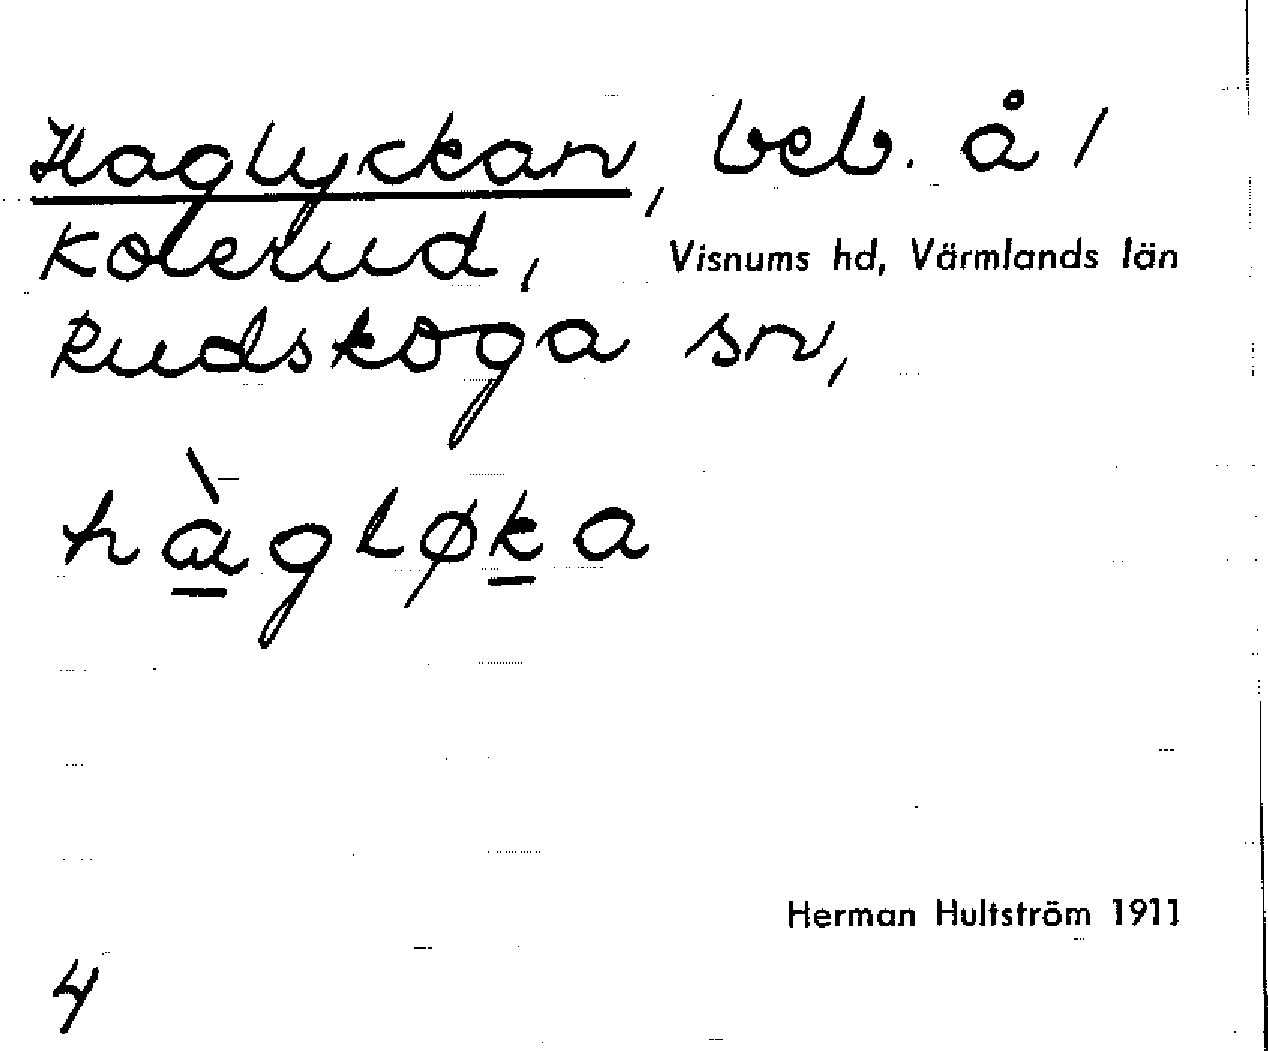 Haglyckan, beb. å /
Kolerud,
Visnums hd, Värmlands län
Rudskoga sn,
hàgLøka
Herman Hultström 1911
4